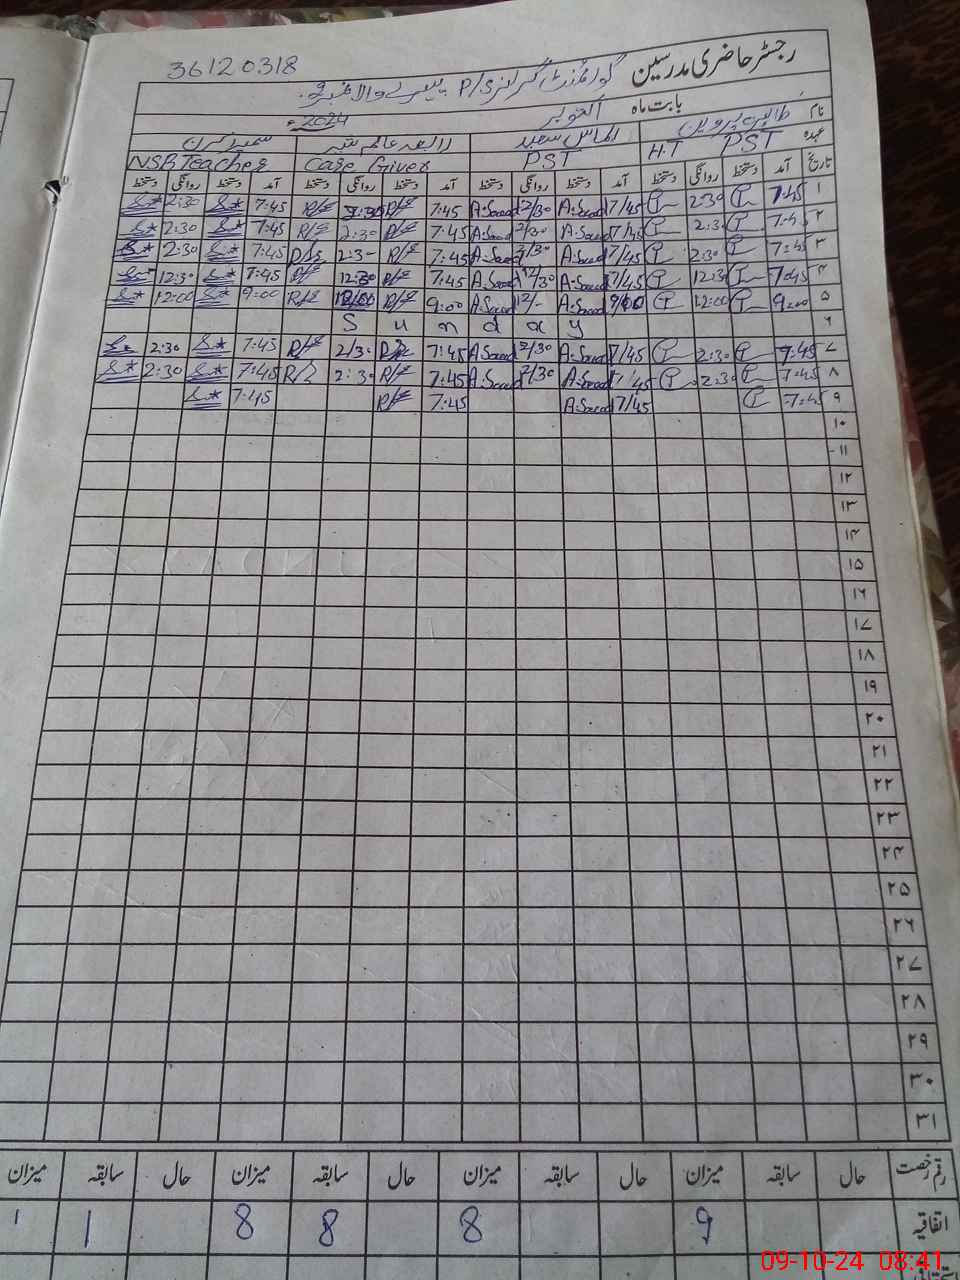 رجسٹر حاضری مدرسین گورنمنٹ گرلز P/S والا 36120318
بابت ماہ اکتوبر 2024ء
نام طاہرہ پروین الماس سعید رابعہ سمیرا کرن
عہدہ PST H.T PST Care Giver NSB Teacher
تاریخ آمد دستخط روانگی دستخط آمد دستخط روانگی دستخط آمد دستخط روانگی دستخط آمد دستخط روانگی دستخط
۱ 7:45 2:30 7/45 A.Saeed 2/30 A.Saeed 7:45 R/S 2:30 R/S 7:45 2:30
۲ 7:45 2:30 7/45 A.Saeed 2/30 A.Saeed 7:45 R/S 2:30 R/S 7:45 2:30
۳ 7:45 2:30 7/45 A.Saeed 2/30 A.Saeed 7:45 R/S 2:30 R/S 7:45 2:30
۴ 7:45 12:30 7/45 A.Saeed 12/30 A.Saeed 7:45 R/S 12:30 R/S 7:45 12:30
۵ 9:00 12:00 9/00 A.Saeed 12/- A.Saeed 9:00 R/S 12:00 R/S 9:00 12:00
۶ Sunday
۷ 7:45 2:30 7/45 A.Saeed 2/30 A.Saeed 7:45 R/S 2/30 R/S 7:45 2:30
۸ 7:45 2:30 7/45 A.Saeed 2/30 A.Saeed 7:45 R/S 2:30 R/S 7:45 2:30
۹ 7:45 7/45 A.Saeed 7:45 R/S 7:45
۱۰
۱۱
۱۲
۱۳
۱۴
۱۵
۱۶
۱۷
۱۸
۱۹
۲۰
۲۱
۲۲
۲۳
۲۴
۲۵
۲۶
۲۷
۲۸
۲۹
۳۰
۳۱
رقم رخصت حال سابقہ میزان حال سابقہ میزان حال سابقہ میزان حال سابقہ میزان
اتفاقیہ 9 8 8 8 1 1
09-10-24 08:41